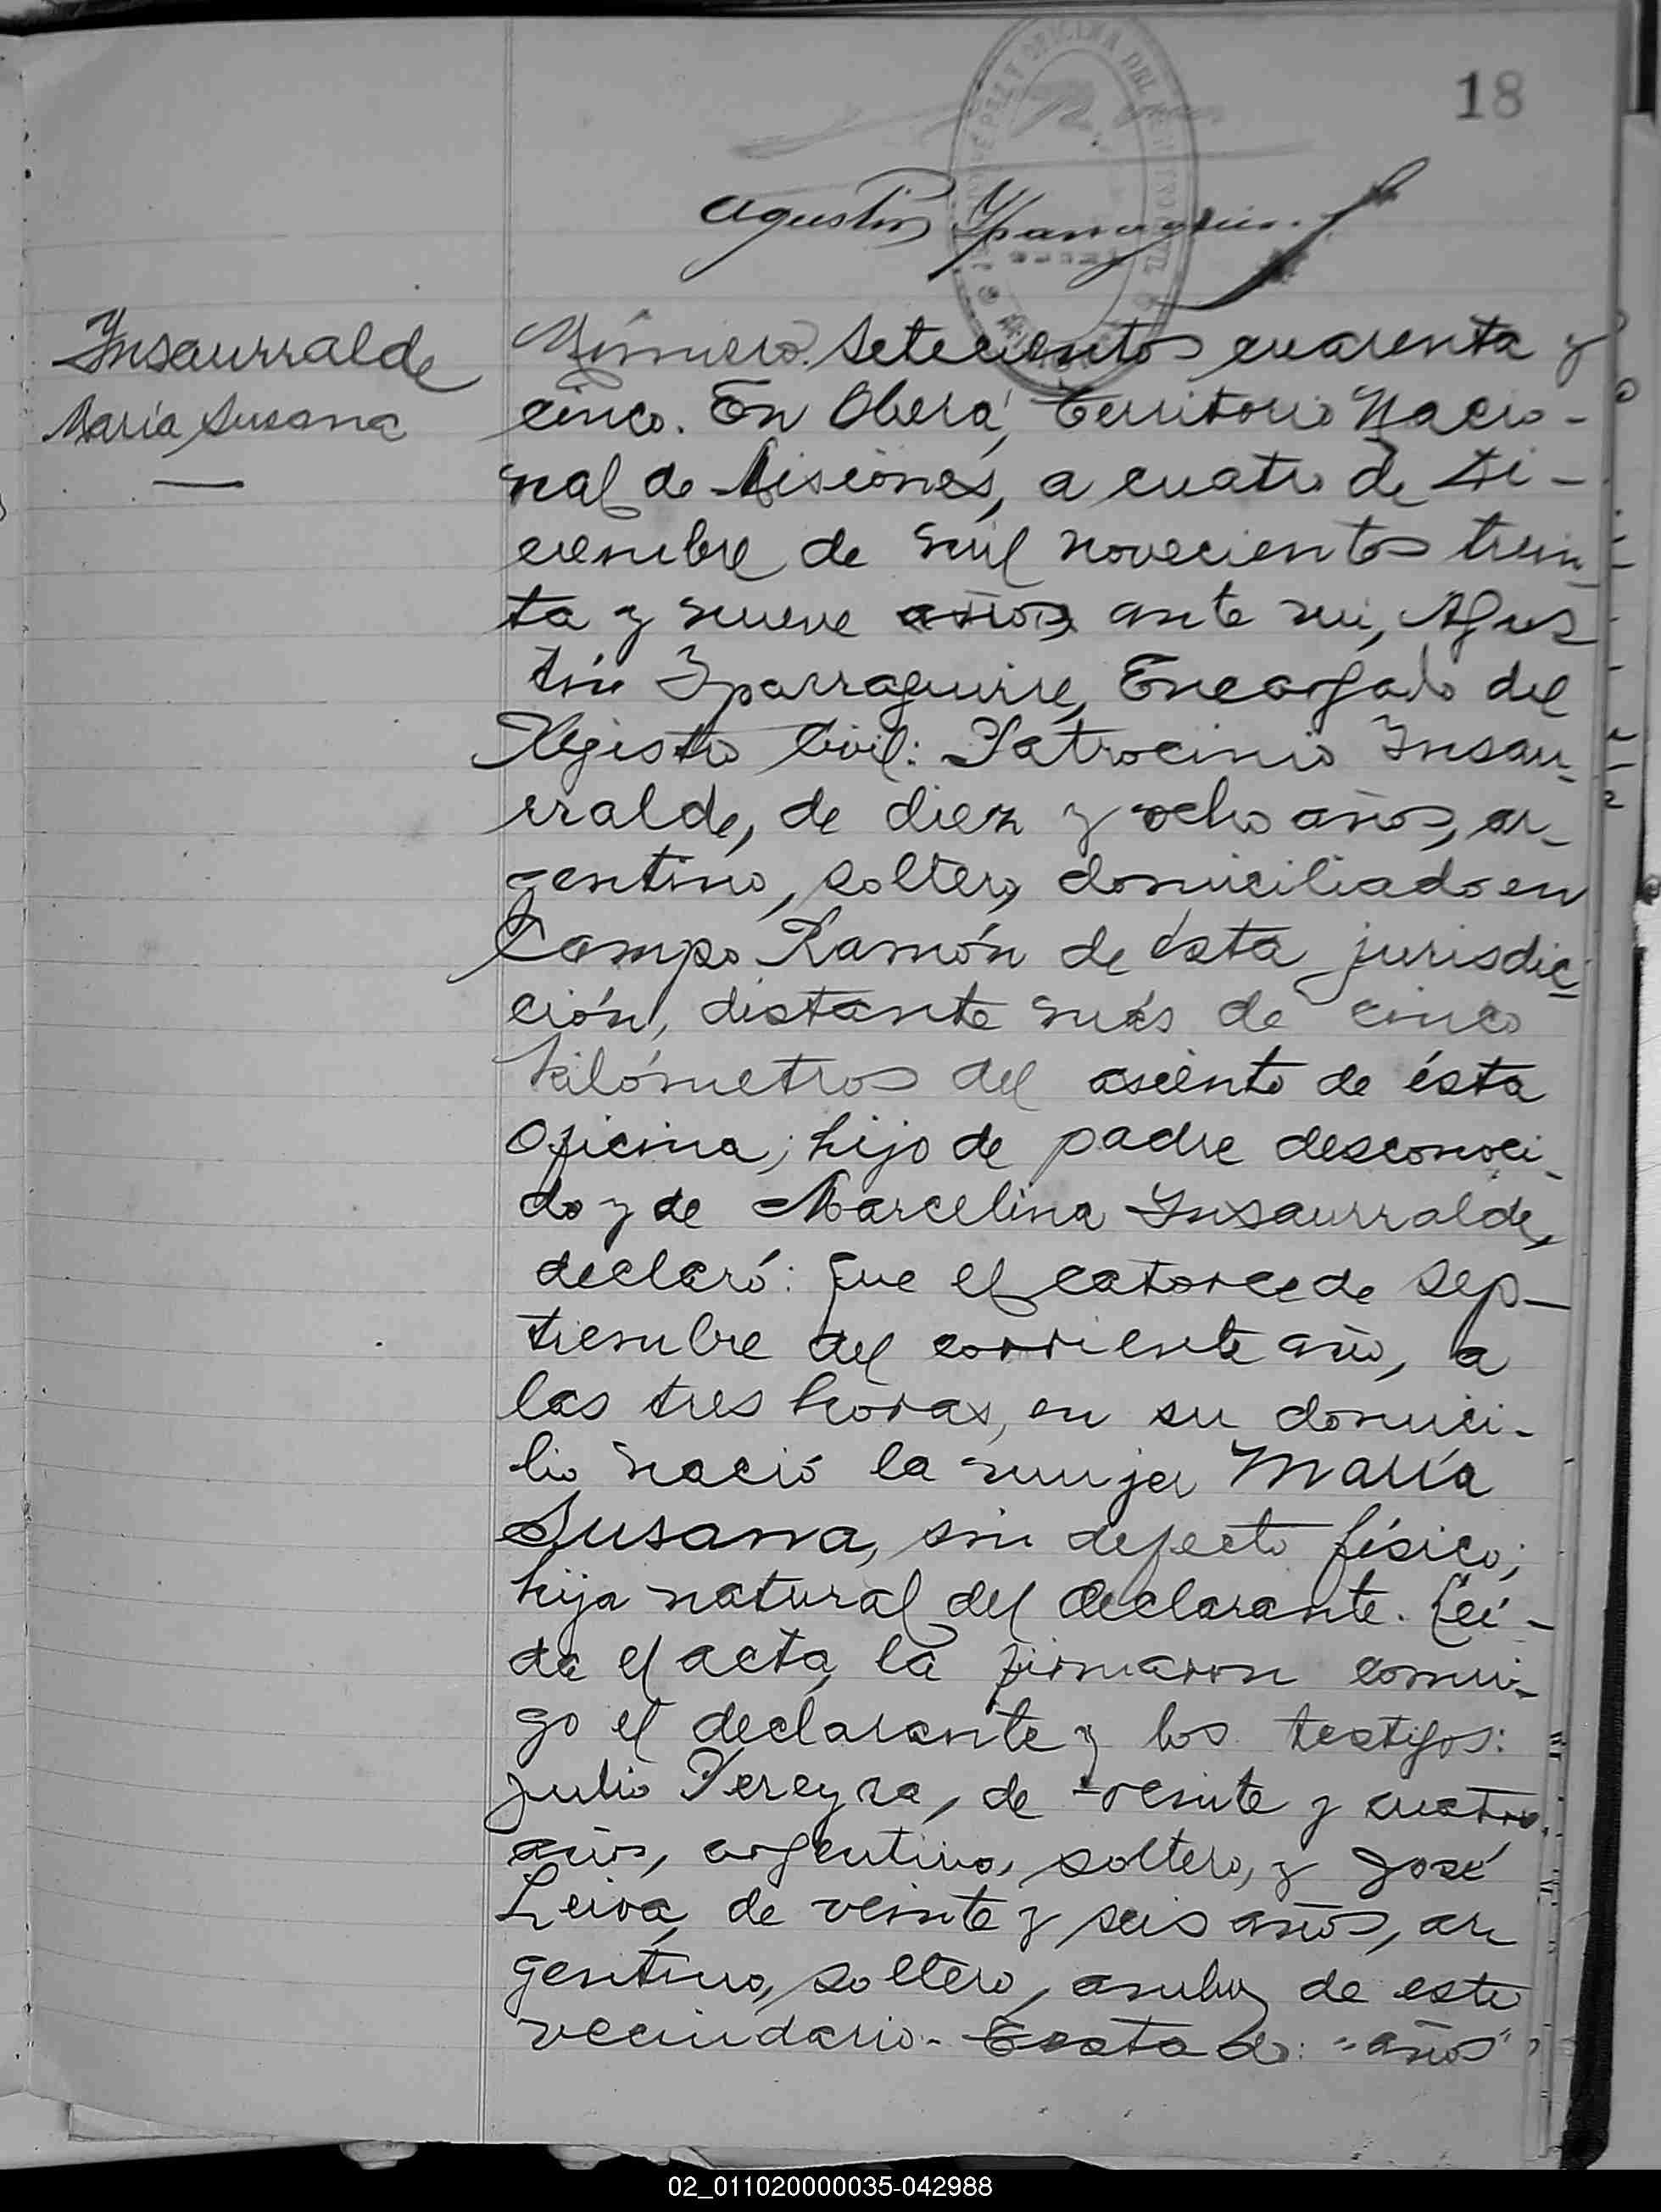 18
Agustín Yparraguirre
Insaurralde
María Susana
Número Setecientos cuarenta y
cinco. En Oberá, Territorio Nacio-
nal de Misiones, a cuatro de Di-
ciembre de mil novecientos trein-
ta y nueve años, ante mi, Agus
tín Iparraguirre, Encargado del
Registro Civil: Patrocinio Insau-
rralde, de diez y ocho años, ar-
gentino, soltero, domiciliado en
Campo Ramón de ésta jurisdic-
ción, distante más de cinco
kilómetros del asiento de ésta
Oficina; hijo de padre desconoci-
do y de Marcelina Insaurralde,
declaró: Que el catorce de Sep-
tiembre del corriente año, a
las tres horas, en su domici-
lio nació la mujer María
Susana, sin defecto físico;
hija natural del declarante. Leí-
da el acta, la firmaron conmi-
go el declarante y los testigos:
Julio Pereyra, de veinte y cuatro
años, argentino, soltero, y José
Leiva, de veinte y seis años, ar
gentino, soltero, ambos de este
vecindario.- Testado: "años"
02_011020000035-042988